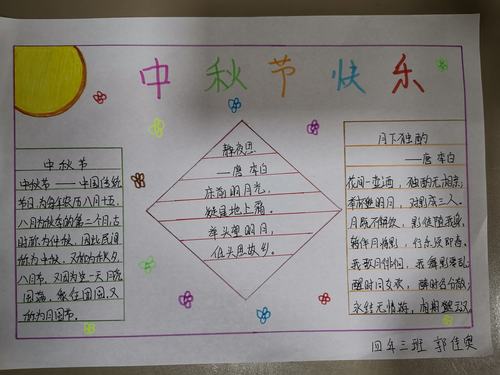 中秋节快乐
中秋节
中秋节——中国传统
节日,为每年农历八月十五,
八月为秋季的第二个月,古
时称为仲秋,因此民间
称为中秋,又称为秋夕,
八月节,又因为这一天月亮
圆满,象征团圆,又
称为月团节。
静夜思
—唐 李白
床前明月光,
疑是地上霜。
举头望明月,
低头思故乡。
月下独酌
——唐 李白
花间一壶酒,独酌无相亲;
举杯邀明月,对影成三人。
月既不解饮,影徒随我身;
暂伴月将影,行乐须即春。
我歌月徘徊,我舞影零乱;
醒时同交欢,醉时各分散;
永结无情游,相期邈云汉。
四年三班 郭佳奥